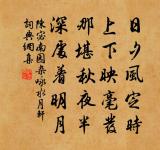 日夕風定時
上下映毫髮
那堪秋夜半
深處着明月
陳宓南園雜詠水月軒
詞典網集